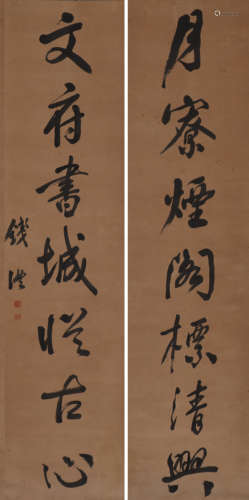 月寮煙閣標清興
文府書城古心
錢